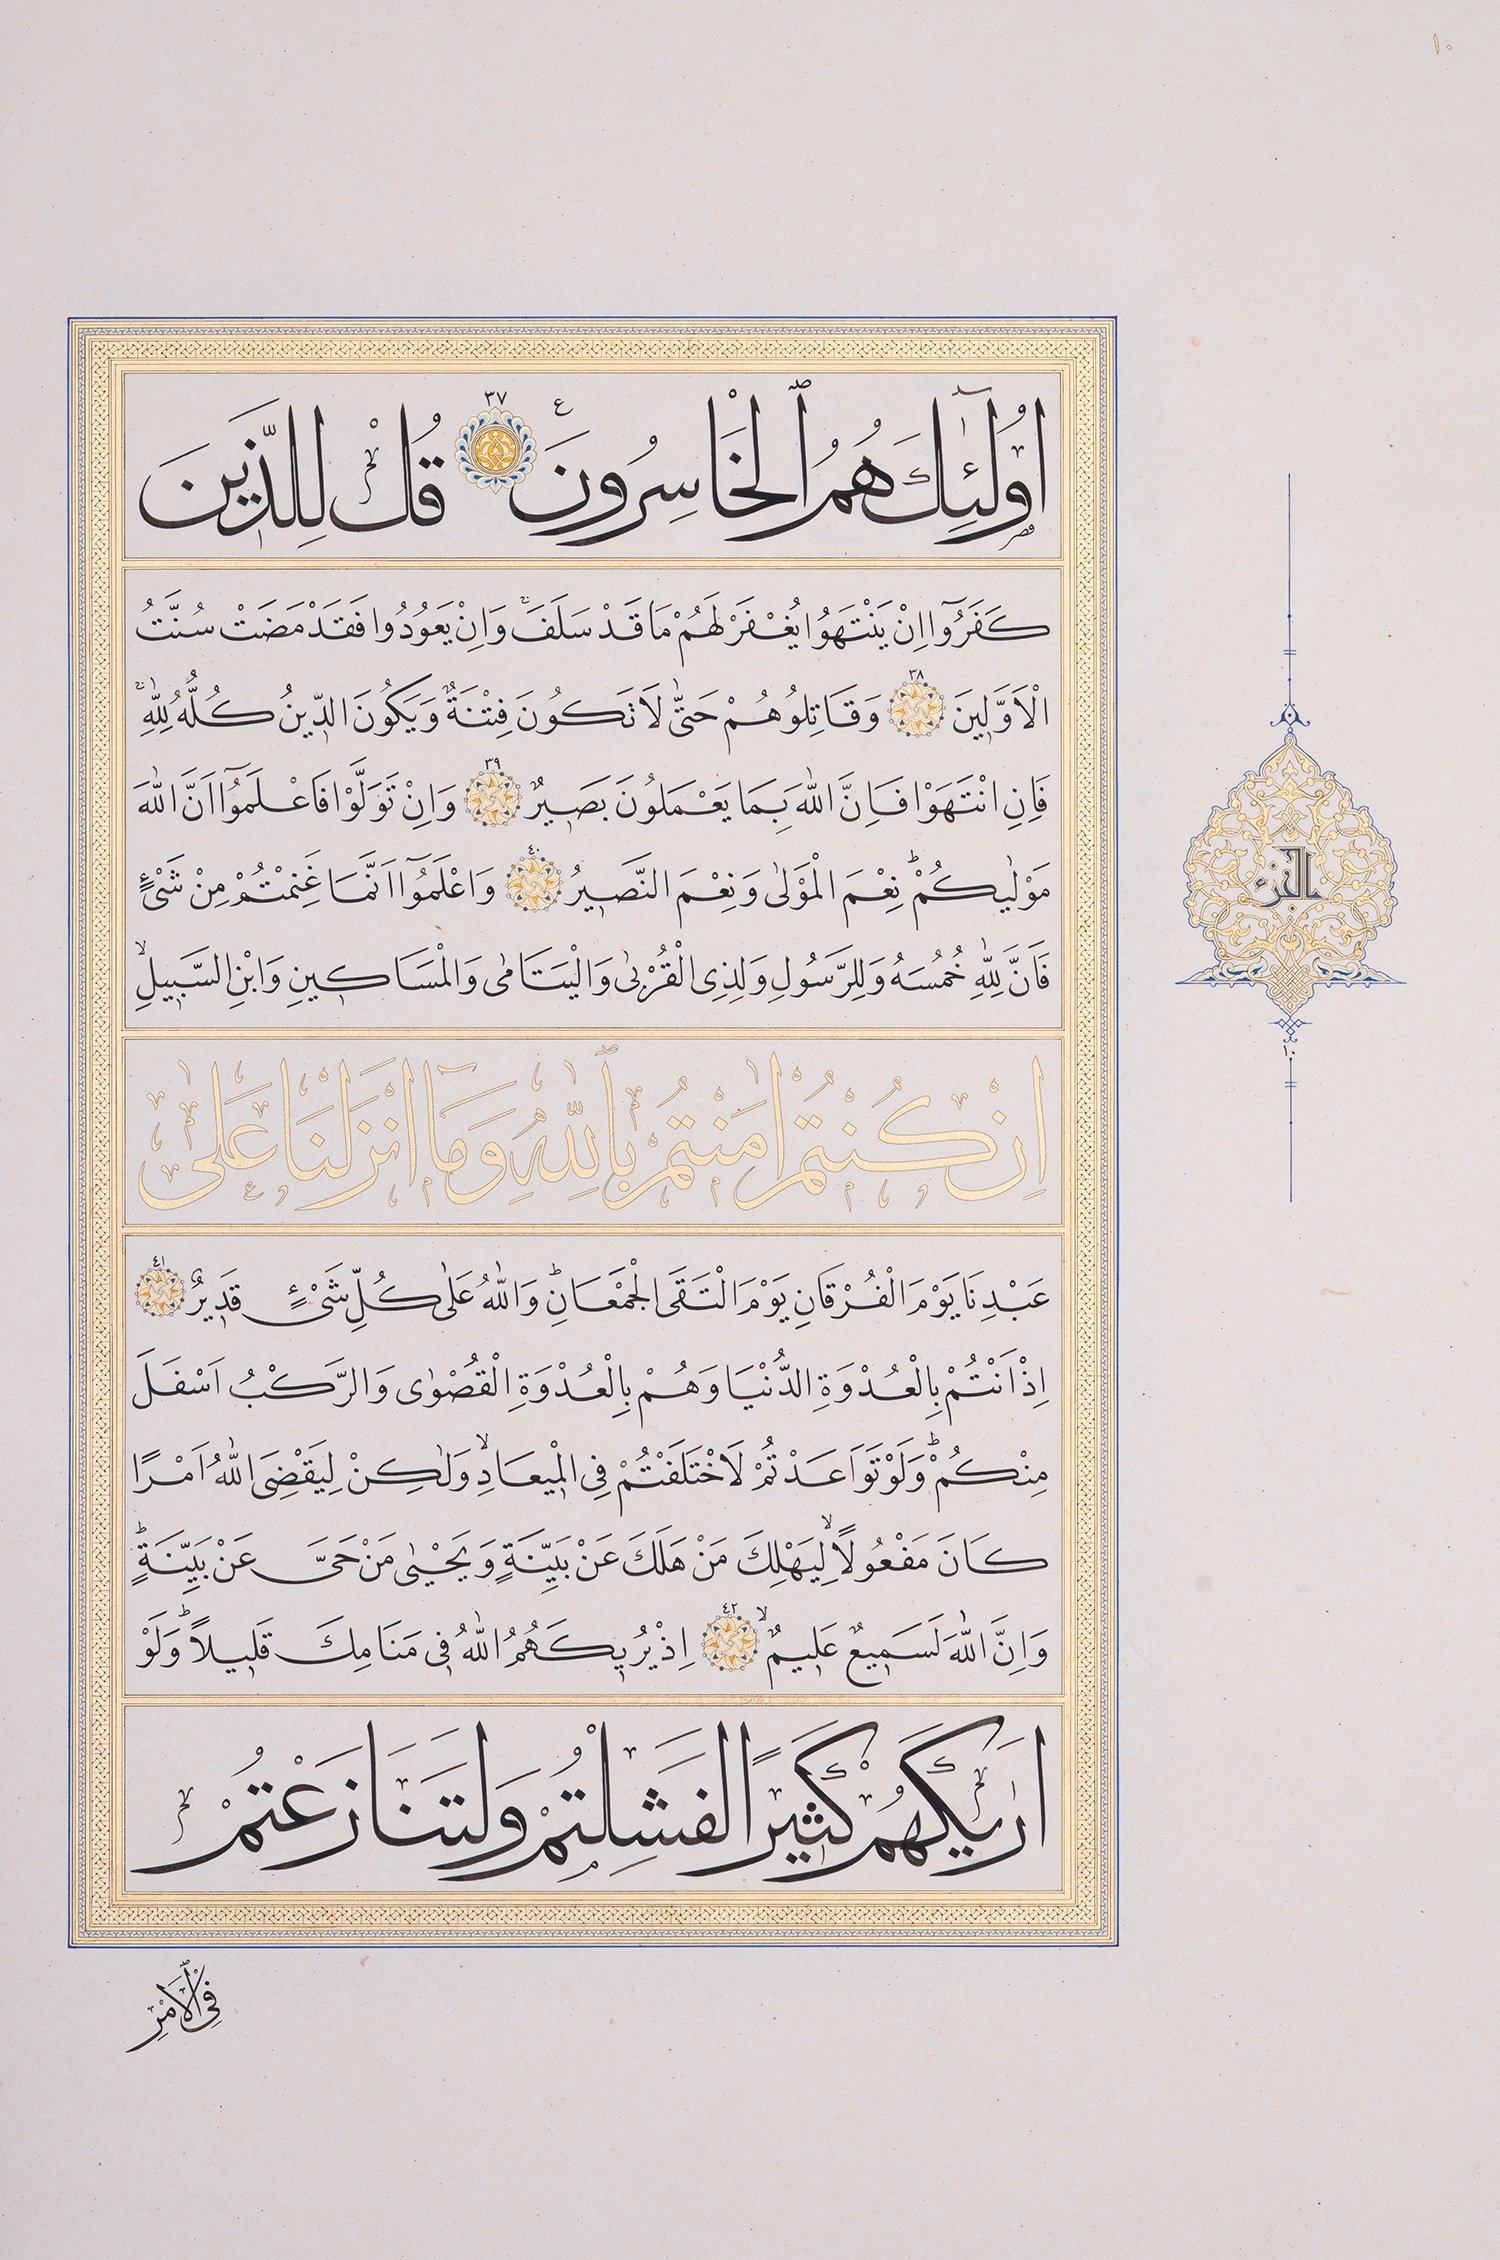 ١٠
اُو۬لٰٓئِكَ هُمُ ٱلْخَاسِرُونَ ع ٣٧ قُلْ لِلَّذ۪ينَ
كَفَرُٓوا اِنْ يَنْتَهُوا يُغْفَرْ لَهُمْ مَا قَدْ سَلَفَۚ وَاِنْ يَعُودُوا فَقَدْ مَضَتْ سُنَّتُ
الْاَوَّل۪ينَ ٣٨ وَقَاتِلُوهُمْ حَتّٰى لَا تَكُونَ فِتْنَةٌ وَيَكُونَ الدّ۪ينُ كُلُّهُ لِلّٰهِۚ
فَاِنِ انْتَهَوْا فَاِنَّ اللّٰهَ بِمَا يَعْمَلُونَ بَص۪يرٌ ٣٩ وَاِنْ تَوَلَّوْا فَاعْلَمُٓوا اَنَّ اللّٰهَ
مَوْلٰيكُمْۜ نِعْمَ الْمَوْلٰى وَنِعْمَ النَّص۪يرُ ٤٠ وَاعْلَمُٓوا اَنَّمَا غَنِمْتُمْ مِنْ شَيْءٍ
فَاَنَّ لِلّٰهِ خُمُسَهُ وَلِلرَّسُولِ وَلِذِي الْقُرْبٰى وَالْيَتَامٰى وَالْمَسَاك۪ينِ وَابْنِ السَّب۪يلِۙ
اِنْ كُنْتُمْ اٰمَنْتُمْ بِٱللّٰهِ وَمَٓا اَنْزَلْنَا عَلٰى
عَبْدِنَا يَوْمَ الْفُرْقَانِ يَوْمَ الْتَقَى الْجَمْعَانِۜ وَاللّٰهُ عَلٰى كُلِّ شَيْءٍ قَد۪يرٌ ٤١
اِذْ اَنْتُمْ بِالْعُدْوَةِ الدُّنْيَا وَهُمْ بِالْعُدْوَةِ الْقُصْوٰى وَالرَّكْبُ اَسْفَلَ
مِنْكُمْۜ وَلَوْ تَوَاعَدْتُمْ لَاخْتَلَفْتُمْ فِي الْم۪يعَادِۙ وَلٰكِنْ لِيَقْضِيَ اللّٰهُ اَمْرًا
كَانَ مَفْعُولًاۙ لِيَهْلِكَ مَنْ هَلَكَ عَنْ بَيِّنَةٍ وَيَحْيٰى مَنْ حَيَّ عَنْ بَيِّنَةٍۜ
وَاِنَّ اللّٰهَ لَسَم۪يعٌ عَل۪يمٌۙ ٤٢ اِذْ يُر۪يكَهُمُ اللّٰهُ ف۪ي مَنَامِكَ قَل۪يلًاۜ وَلَوْ
اَرٰيكَهُمْ كَث۪يرًا لَفَشِلْتُمْ وَلَتَنَازَعْتُمْ
فِي ٱلْاَمْرِ
الجزء
١٠